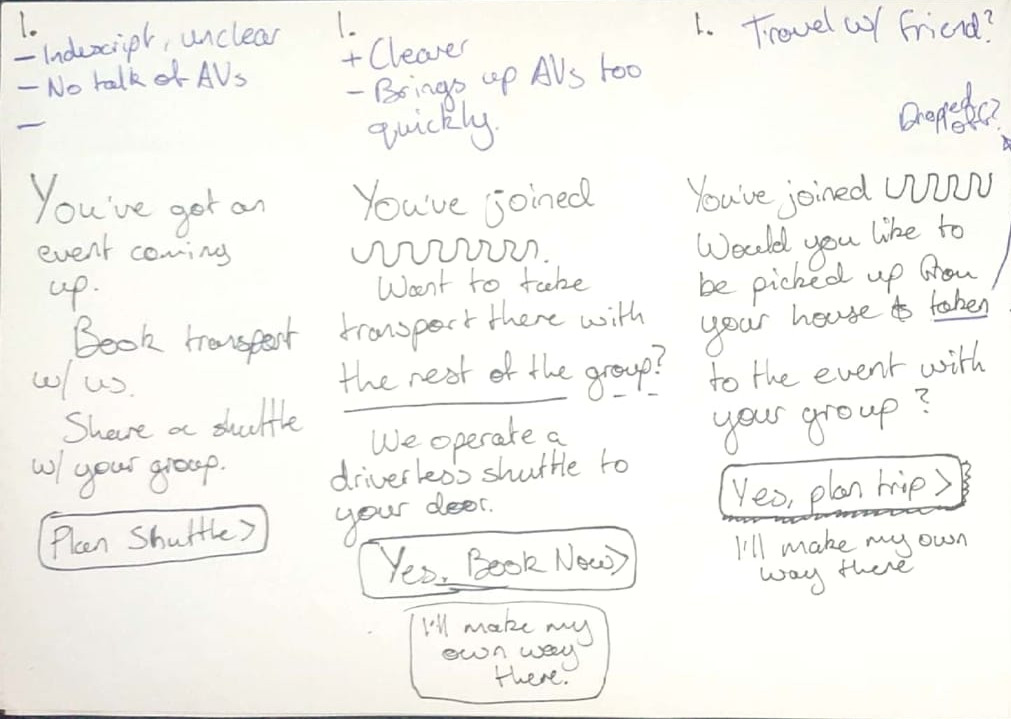 1.
– Indescript, unclear
– No talk of AVs
–
You've got an
event coming
up.
Book transport
w/ us.
Share a shuttle
w/ your group.
Plan Shuttle >
1.
+ Clearer
– Brings up AVs too
quickly.
You've joined
Want to take
transport there with
the rest of the group?
We operate a
driverless shuttle to
your door.
Yes, Book Now >
I'll make my
own way
there.
1. Travel w/ friend?
Dropped
off?
You've joined
Would you like to
be picked up from
your house & taken
to the event with
your group?
Yes, plan trip >
I'll make my own
way there